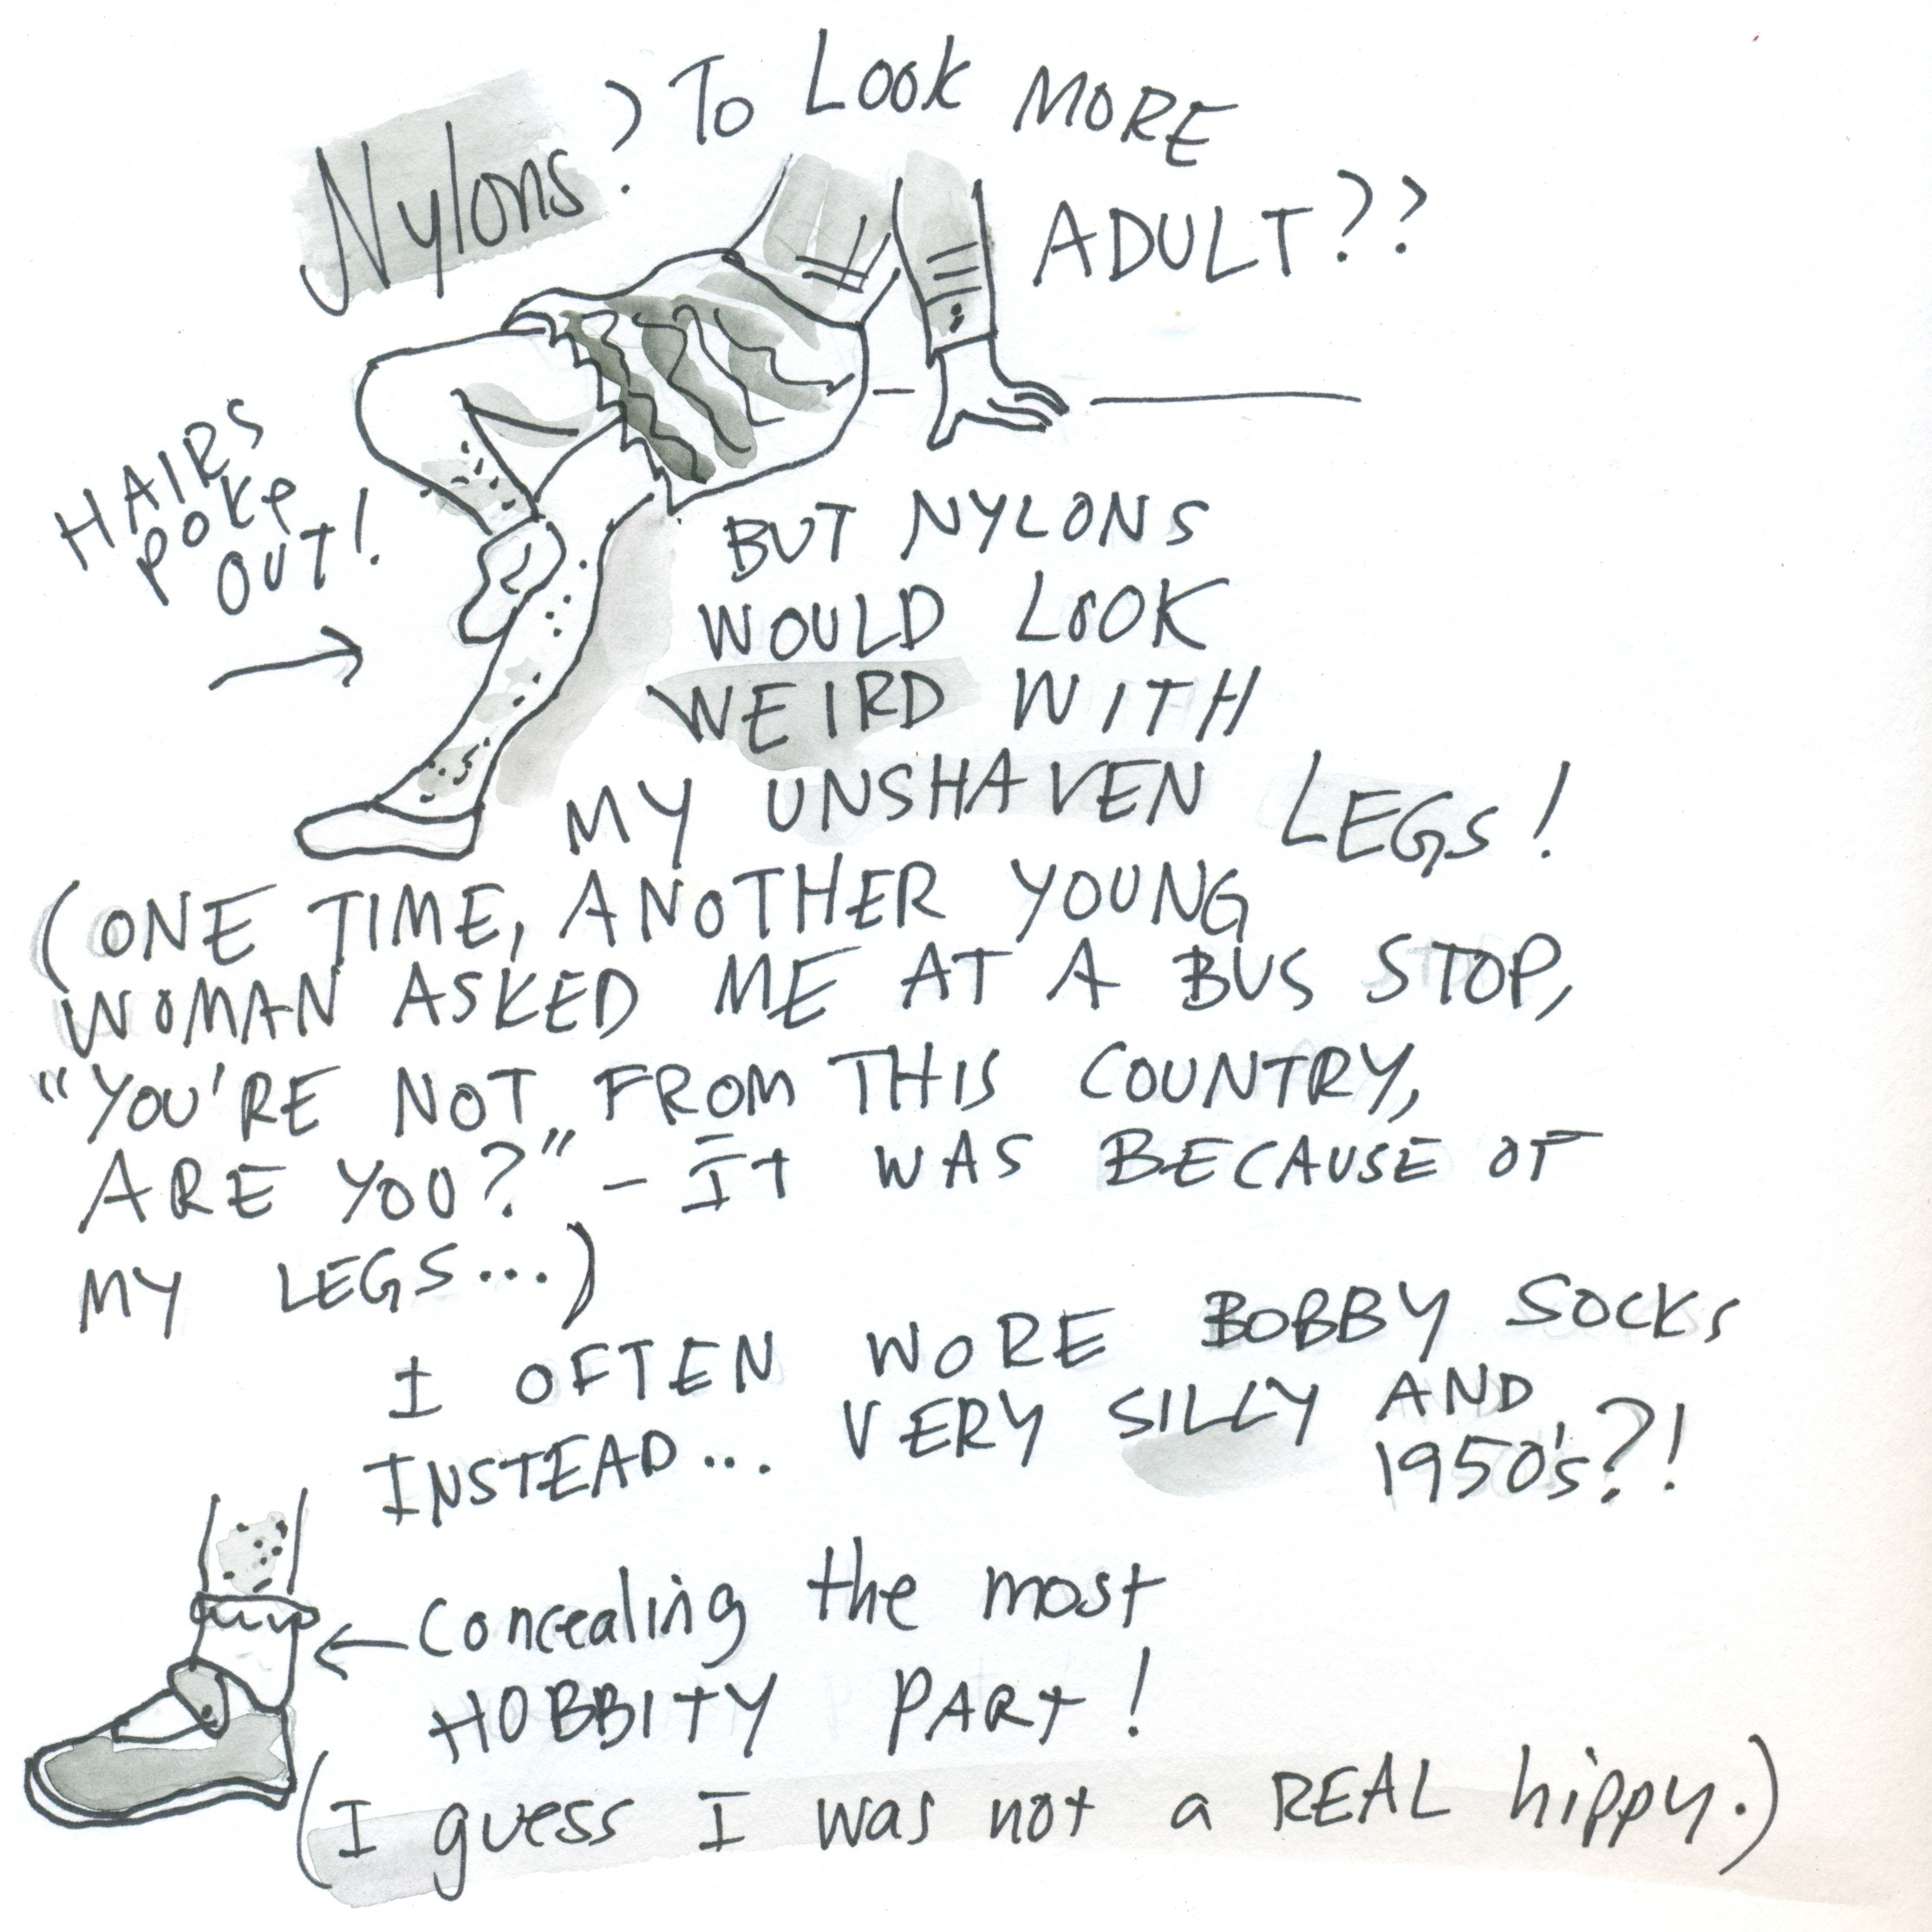 Nylons? To Look MORE
ADULT??
HAIRS
POKE
OUT!
BUT NYLONS
WOULD LOOK
WEIRD WITH
MY UNSHAVEN LEGS!
(ONE TIME, ANOTHER YOUNG
WOMAN ASKED ME AT A BUS STOP,
"YOU'RE NOT FROM THIS COUNTRY,
ARE YOU?" – It WAS BECAUSE OF
MY LEGS...)
I OFTEN WORE BOBBY SOCKS
INSTEAD... VERY SILLY AND
1950's?!
Concealing the most
HOBBITY PART!
(I guess I was not a REAL hippy.)